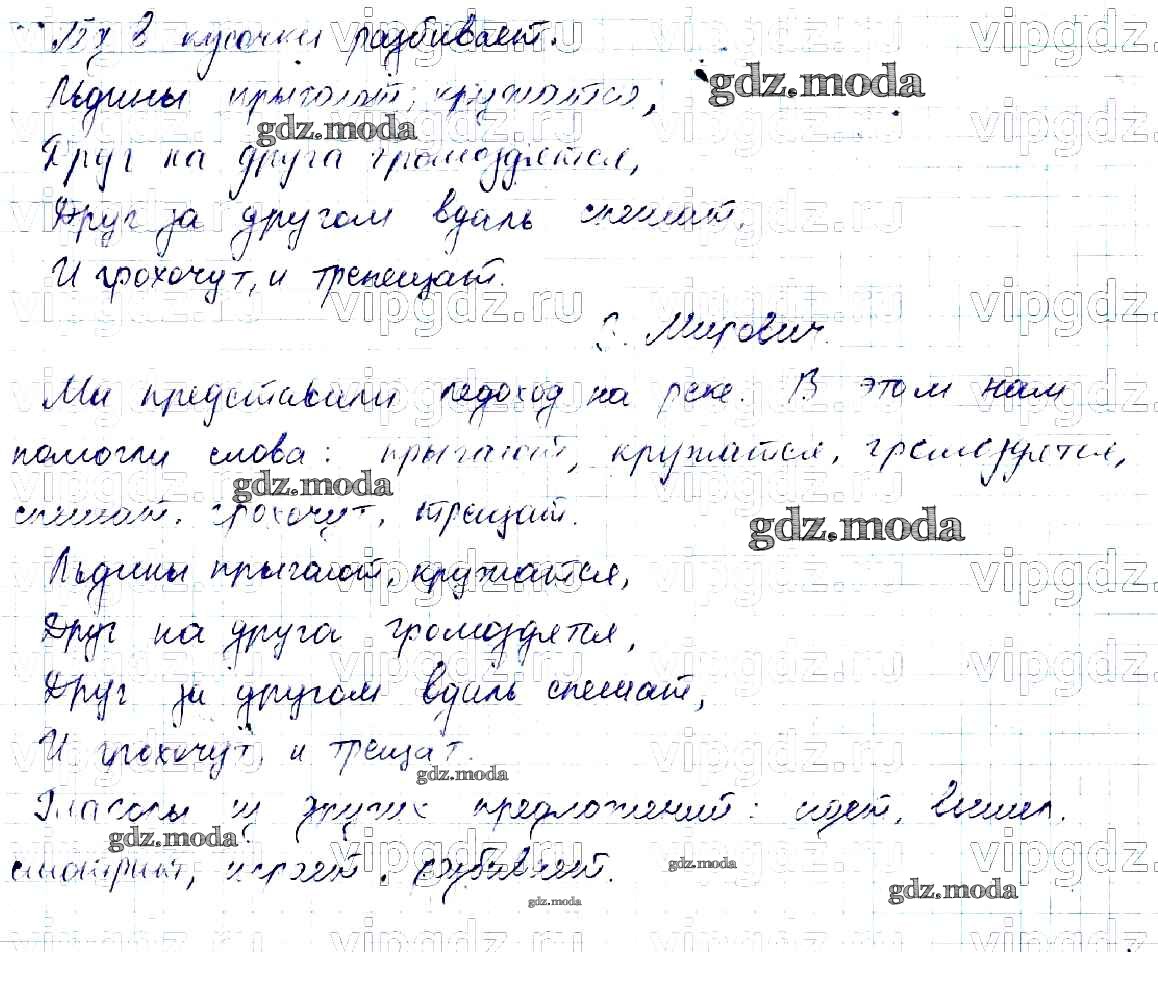 Их в кусочки разбивает.
Льдины прыгают, кружатся,
Друг на друга громоздятся,
Друг за другом вдаль спешат,
И грохочут, и трепещат.
Мирович.
Мы представили ледоход на реке. В этом нам
помогли слова: прыгают, кружатся, громоздятся,
спешат, грохочут, трещат.
Льдины прыгают, кружатся,
Друг на друга громоздятся,
Друг за другом вдаль спешат,
И грохочут, и трещат.
Глаголы из других предложений: идет, вышел,
смотрит, играет, разбивает.
gdz.moda
vipgdz.ru